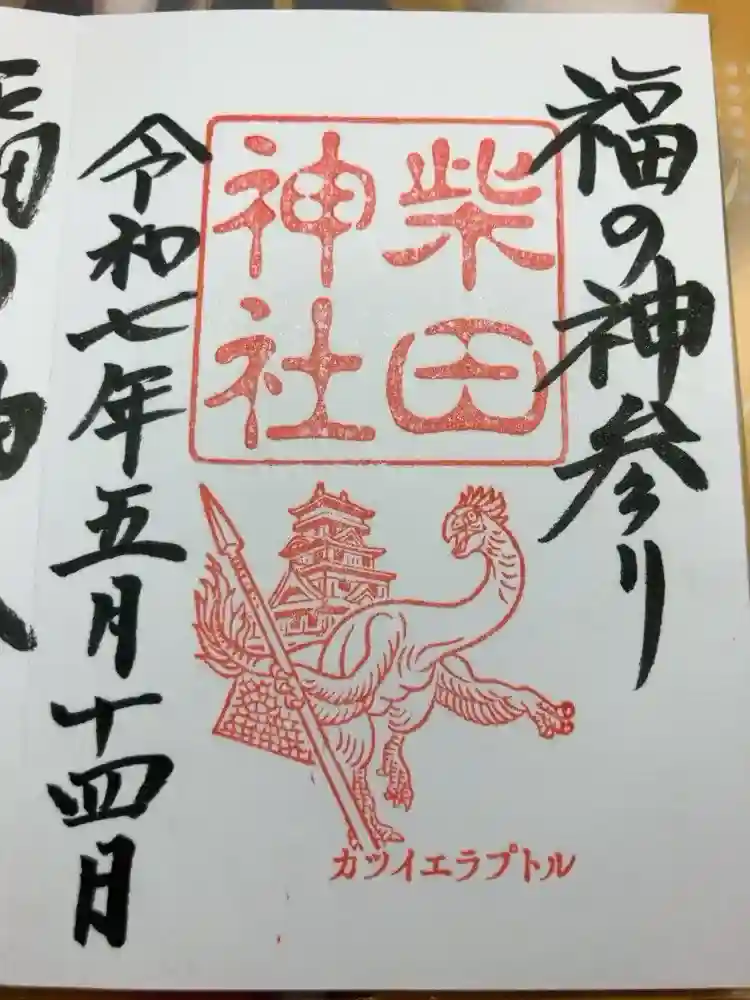 福の神参り
柴田
神社
令和七年五月十四日
カツイエラプトル